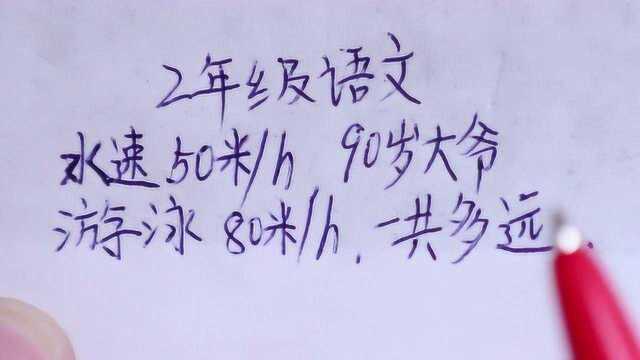 2年级语文
水速50米/h 90岁大爷
游泳80米/h,一共多远